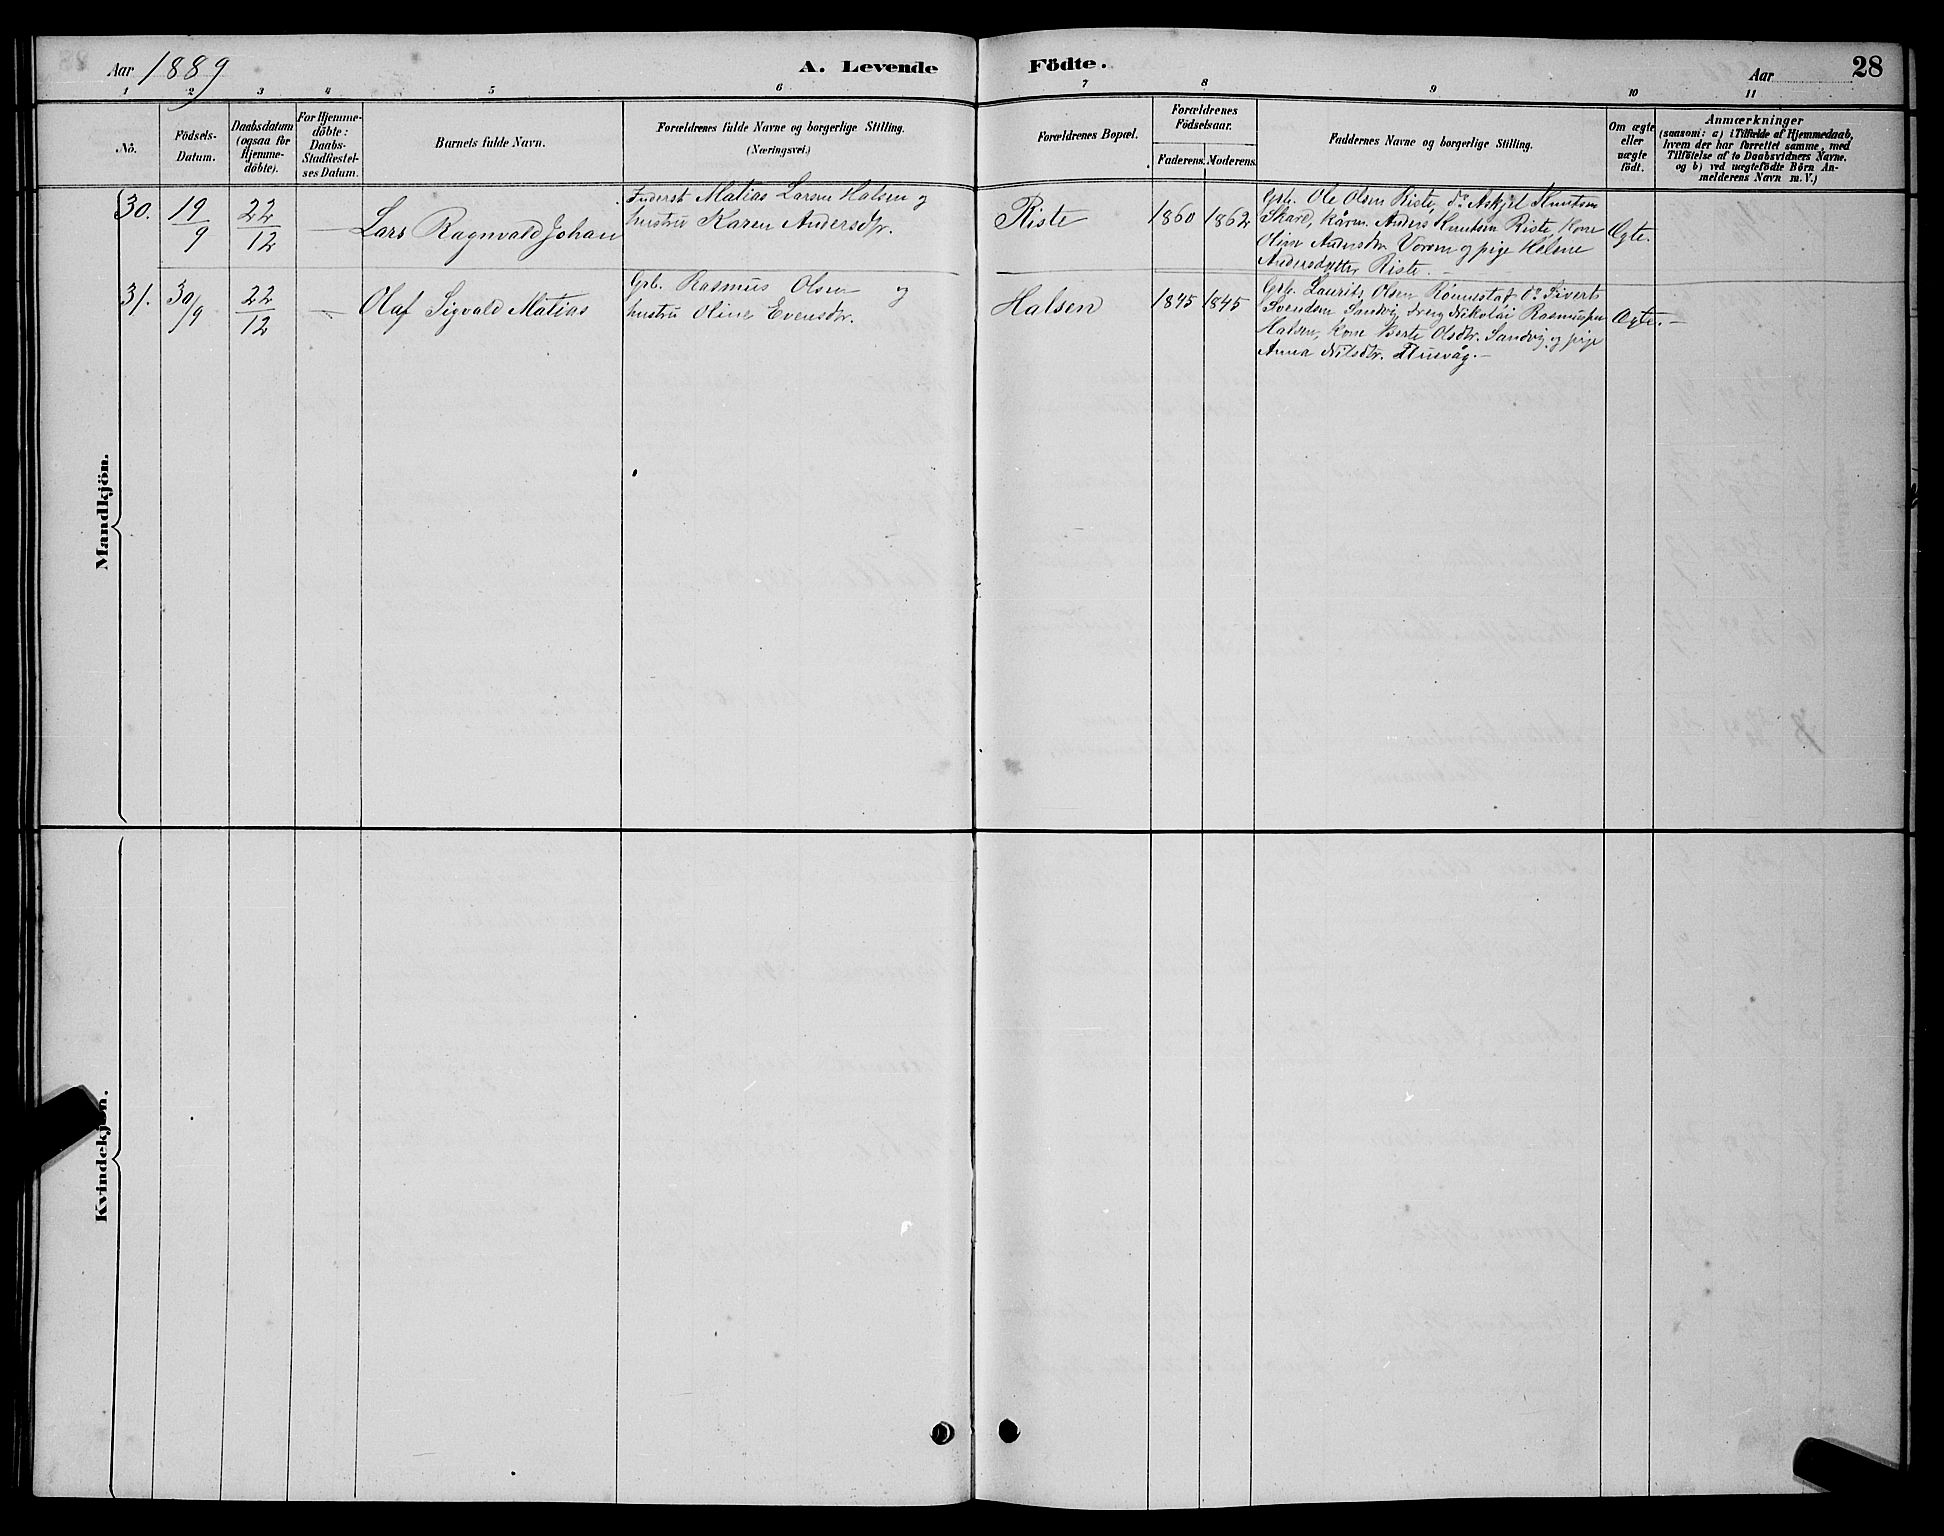 Aar 1889
A. Levende Födte.
Aar
28
1 2 3 4 5 6 7 8 9 10 11
No.
Födsels-Datum.
Daabsdatum (ogsaa for Hjemme-döbte).
For Hjemme-döbte: Daabs-Stadfæstel-ses Datum.
Barnets fulde Navn.
Forældrenes fulde Navne og borgerlige Stilling.
(Næringsvei.)
Forældrenes Bopæl.
Forældrenes Födselsaar.
Faderens. Moderens.
Faddernes Navne og borgerlige Stilling.
Om ægte eller uægte födt.
Anmærkninger
(saasom: a) i Tilfælde af Hjemmedaab,
hvem der har forrettet samme, med
Tilföielse af to Daabsvidners Navne,
og b) ved uægtefödte Börn An-
melderens Navn m. V.)
Mandkjön.
30. 19/9 22/12 — Lars Ragnvald Johan
Matias Larsen Halsen og
hustru Karen Andersdtr.
Riste 1860 1862
Grb. Ole Olsen Riste, do Askjel Knutsen
Skare, Kårm. Anders Knutsen Riste, Kone
Oline Andersdtr. og pige Helene
Andersdatter Riste. —
Ægte.
31. 30/9 22/12 — Olaf Sigvald Matias
Grb. Rasmus Olsen og
hustru Oline Evensdtr.
Halsen 1845 1845
Grb. Laurits Olsen Rønnestad do Sivert
Svendsen Sandvig, Dreng Nikolai Rasmussen
Halsen, Kone Berte Olsdtr. Sandvig og pige
Anna Nilsdtr. —
Ægte. —
Kvindekjön.